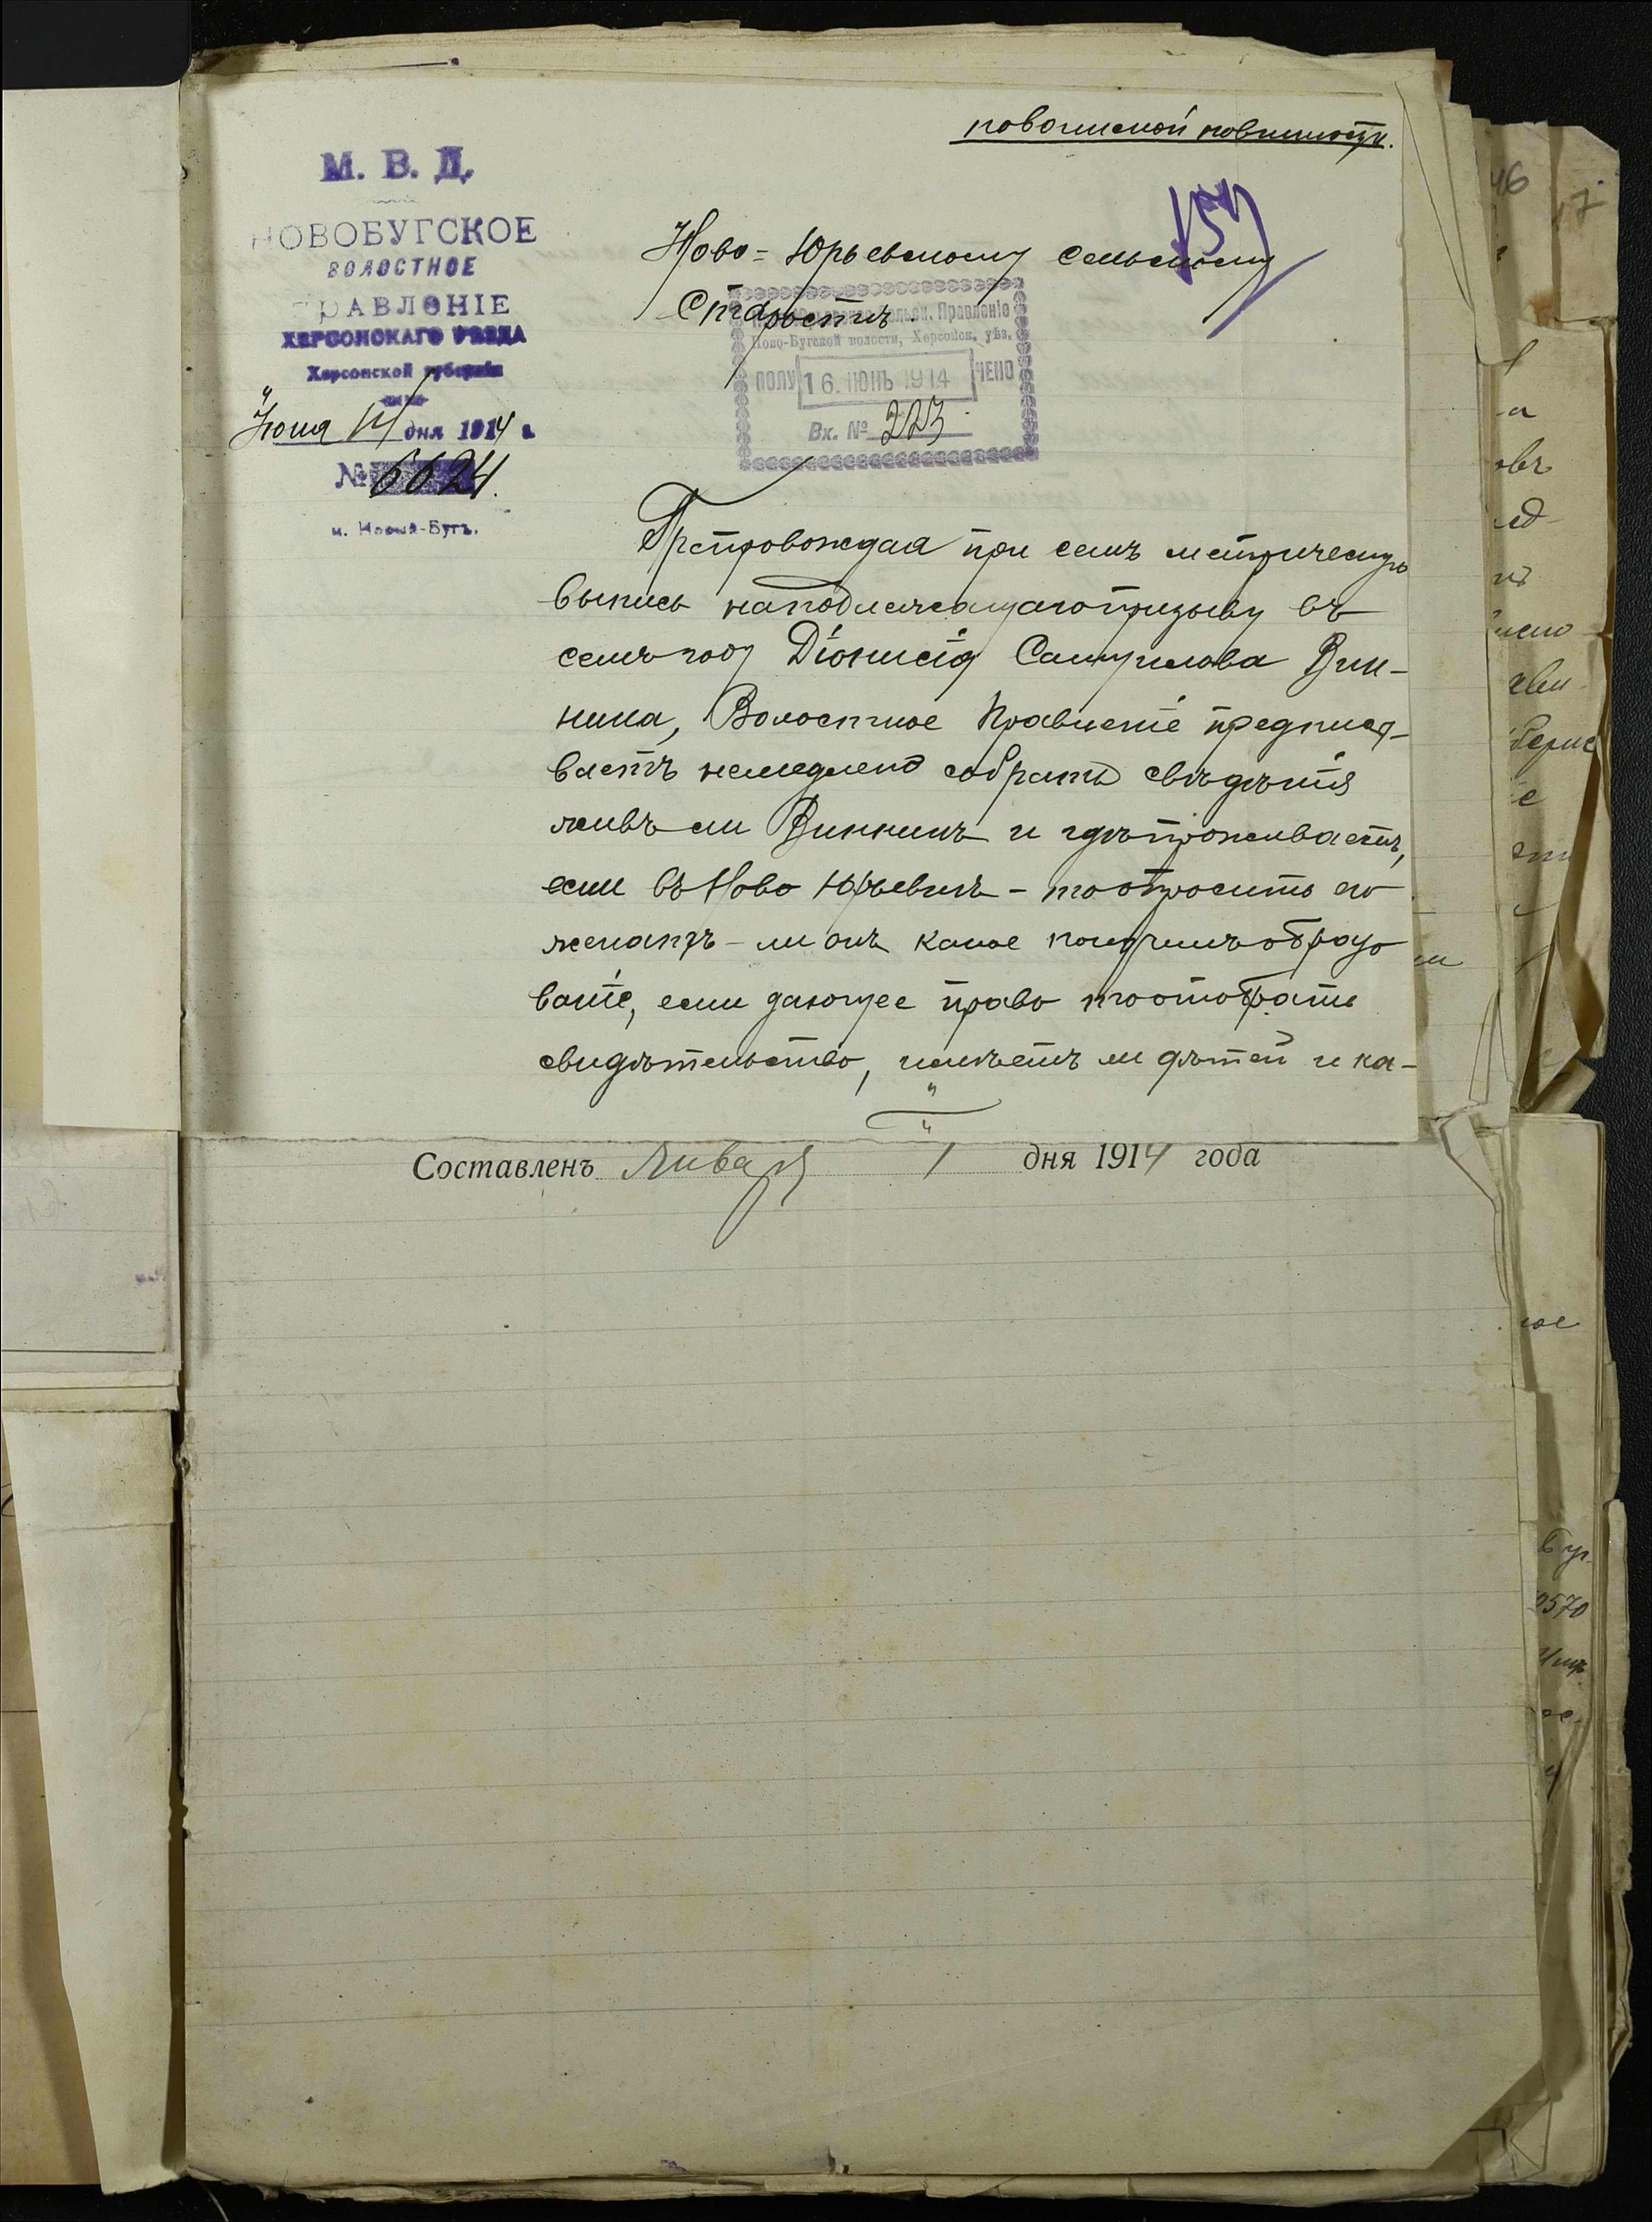 по воинской повинности.
М. В. Д.
НОВОБУГСКОЕ
ВОЛОСТНОЕ
ПРАВЛЕНІЕ
ХЕРСОНСКАГО УѢЗДА
Херсонской губерніи
Іюня 14 дня 1914 г.
№ 6624.
м. Новый-Бугъ.
Ново=Юрьевскому Сельскому
Старостѣ.
Сельск. Правленіе
Ново-Бугской волости, Херсонск. уѣз.
ПОЛУ 16. ІЮНЬ 1914 ЧЕНО
Вх. № 223
Препровождая при семъ метрическую
выпись на подлежащаго призыву въ
семъ году Діонисія Самуилова Вин-
ника, Волостное Правленіе предписы-
ваетъ немедлено собрать свѣдѣнія
живъ ли Винникъ и гдѣ проживаетъ,
если въ Ново Юрьевкѣ - то опросить его
женатъ - ли онъ какое получилъ образо
ваніе, если дающее право то отобрать
свидѣтельство, имѣетъ ли дѣтей и ка-
Составленъ Января 1 дня 1914 года